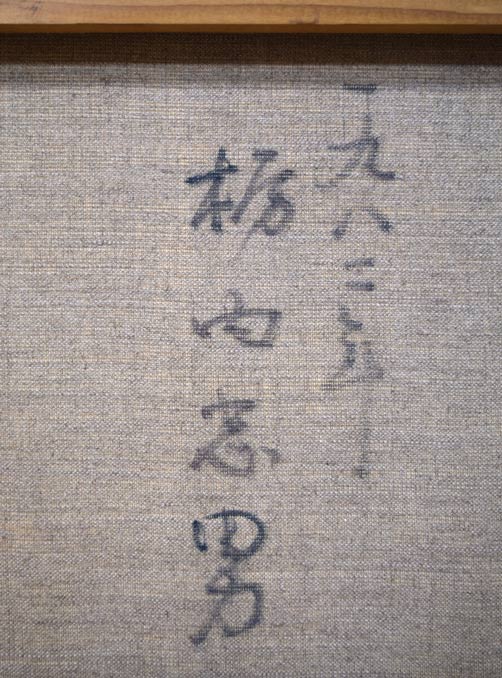 一九八二年
栃内忠男